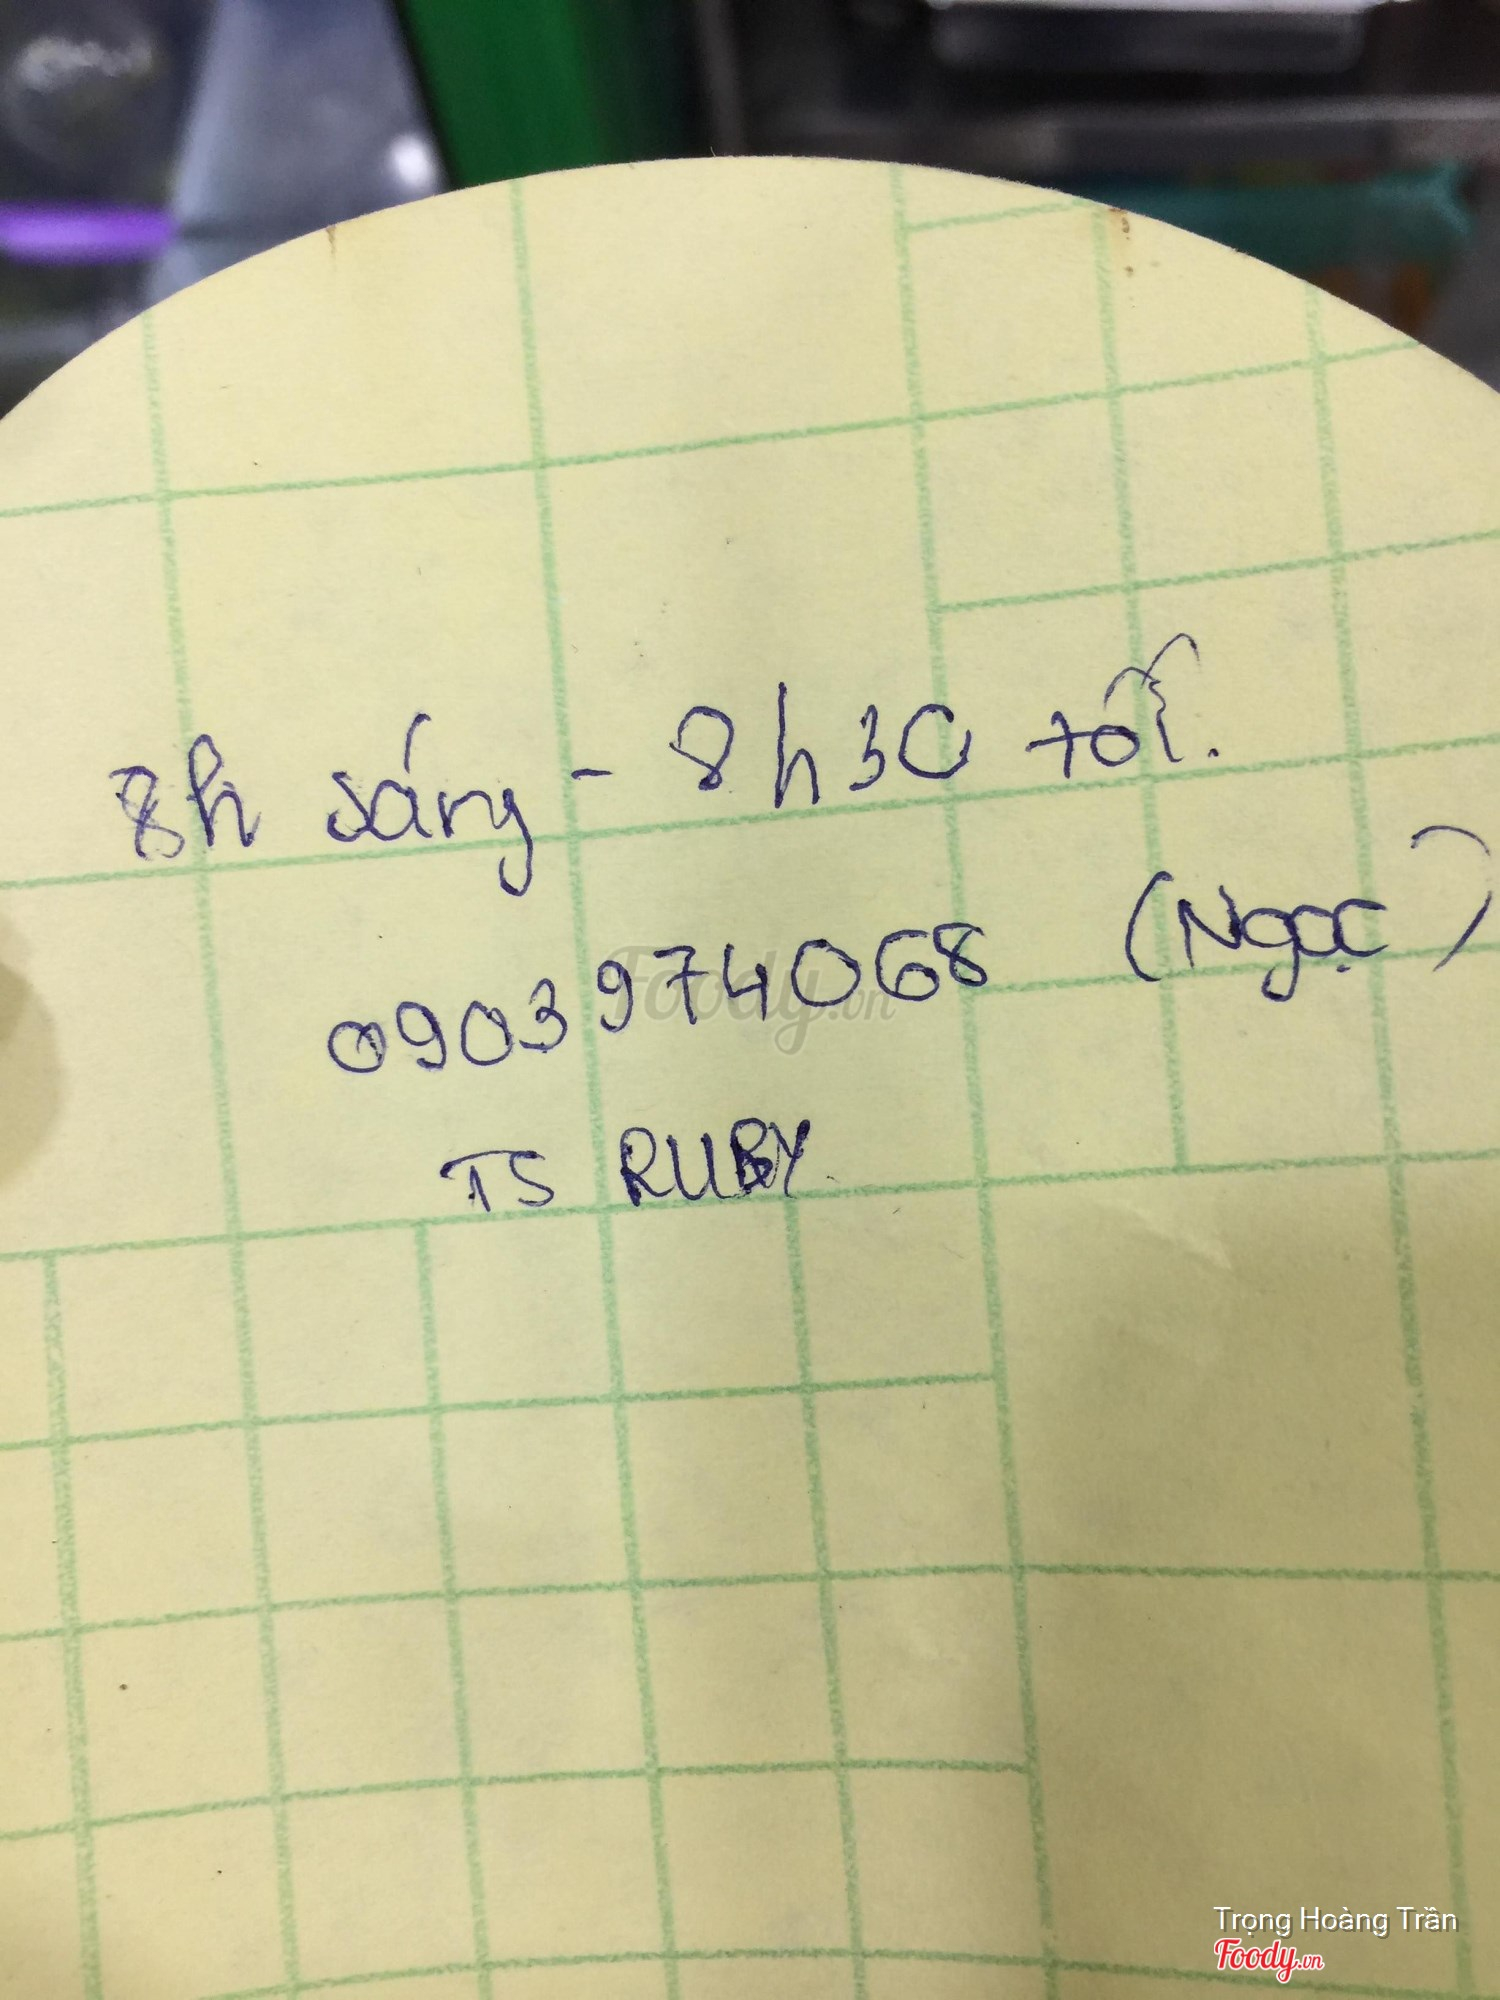 8h sáng - 8h30 tối.
0903974068 (Ngọc)
TS RUBY
Foody.vn
Trọng Hoàng Trần
Foody.vn